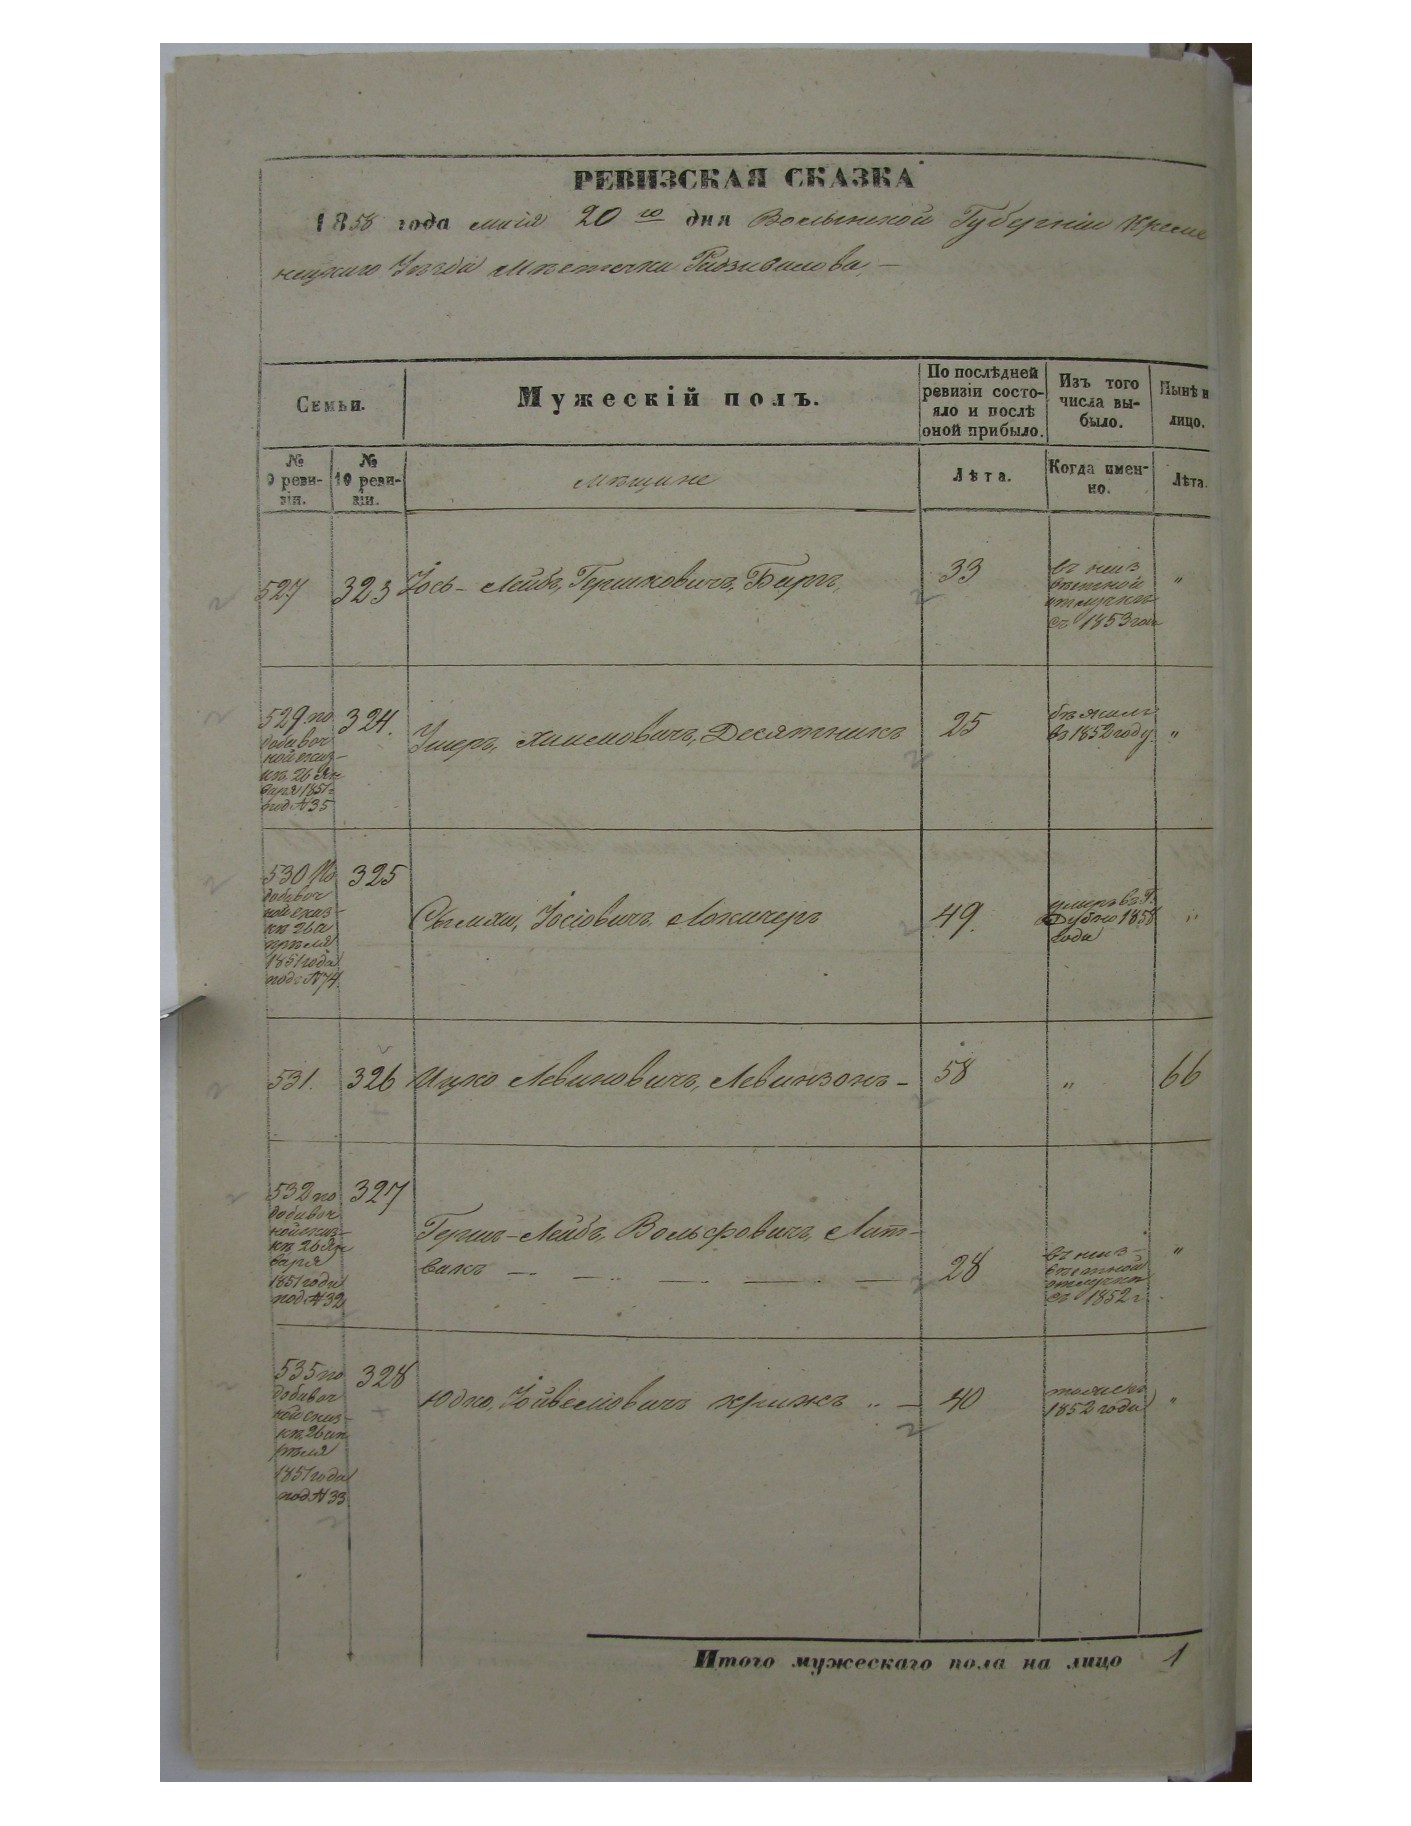 РЕВИЗСКАЯ СКАЗКА
1858 года маія 20го дня Волынской Губерніи Креме
нецкаго Уезда Местечка Радзивилова —
Семьи.
Мужескій полъ.
По послѣдней ревизіи состо-
яло и послѣ
оной прибыло.
Изъ того
числа вы-
было.
Нынѣ н
лицо.
№
9 реви-
зіи.
№
10 реви-
зіи.
Мещане
Лѣта.
Когда имен-
но.
Лѣта.
527 323 Іось-Лейбъ, Гершковичъ, 33
въ неиз
вестной
отлучке
съ 1853 года
"
529 по
добавоч
ной сказ-
ке 26 Ян
варя 1851
под №35
324. Хаимовичъ, Десятникъ 25
бежалъ
въ 1852 году.
"
530 По
добавоч
ной сказ-
ке 26 а
преля
1851 года
подъ №74.
325
Іосіовичъ, 49.
умеръ въ Г.
1858
года
"
531. 326 Ицко Левиковичъ, Левинзонъ — 58 " 66
532 по
добавоч
ной сказ-
ке 26 Ян
варя
1851 года
под №32
327
Гершъ-Лейбъ, Вольфовичъ, Лит-
вакъ — — — — — 28
въ неиз-
вестной
отлучке
съ 1852 г.
"
535 по
добавоч
ной сказ-
ке 26 ап
реля
1851 года
под №33
328
Юдко, крижъ " — 40
1852 года
"
Итого мужескаго пола на лицо 1